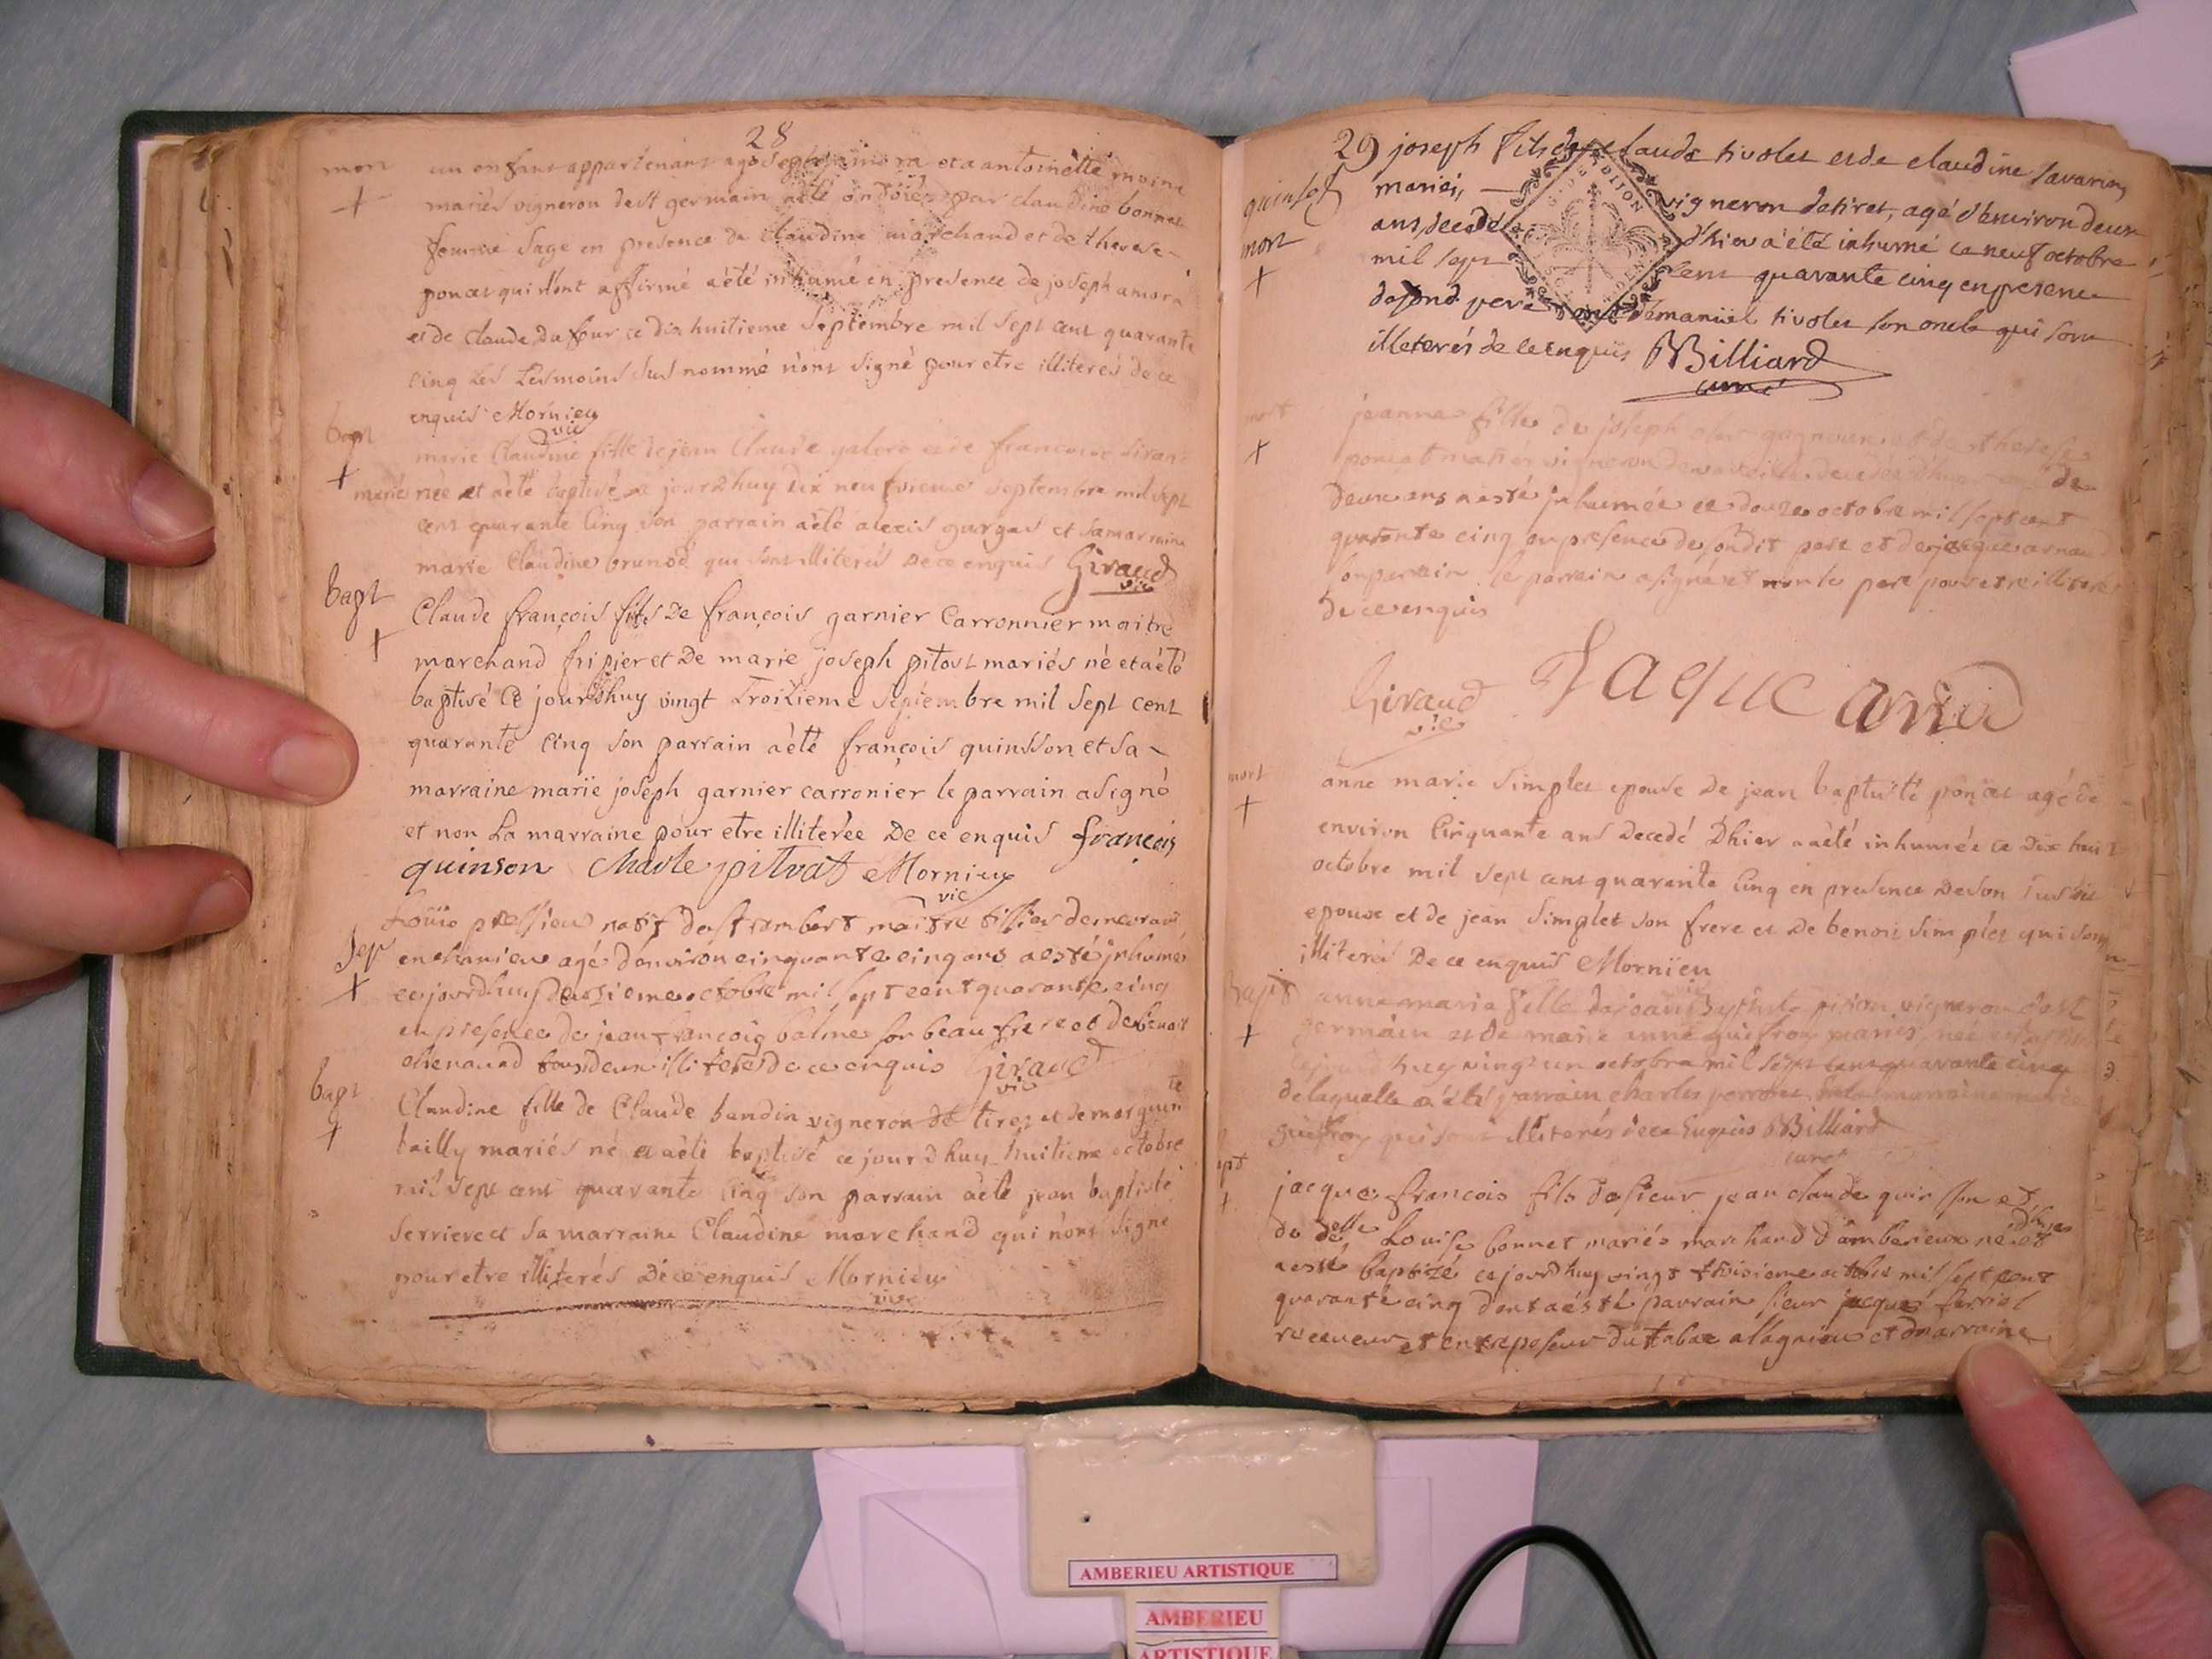 28
mort
un enfant appartenant a joseph et a antoinette moine
mariés vigneron de st germain a été ondoiée par claudine bonnet
femme sage en presence de claudine marchand et de therese
poncet qui l'ont affirmé a été inhumé en presence de joseph
et de claude dufour ce dix huitieme septembre mil sept cent quarante
cinq les tesmoins sus nommé n'ont signé pour etre illiterés de ce
enquis Mornieu
vic
bapt
marie Claudine fille de jean Claude et de francoise
née et a été baptisé ce jourdhuy dix neufvieme septembre mil sept
cent quarante cinq son parrain a été alexis gargas et sa marraine
marie Claudine brunod qui sont illiterés de ce enquis Giraud
vic
bapt
Claude françois fils de françois garnier Carronnier maitre
marchand fripier et De marie joseph pitost mariés né et a été
baptisé Ce jourdhuy vingt Troizieme septembre mil sept cent
quarante cinq son parrain a été françois quinsson et sa
marraine marie joseph garnier carronier le parrain a signé
et non La marraine pour etre illiterée De ce enquis françois
quinson Charle pitrat Mornieu
vic
Sep
maitre tissier demeurant
agé denviron cinquante cinq ans a esté jnhumé
ce jourdhuy octobre mil sept cent quarante cinq
en presence de jean francois balme son beau frere et de benoit
chenavad tous deux illiterés de ce enquis Giraud
vic
bapt
Claudine fille de Claude baudin vigneron de tiret et de marguerite
bailly mariés né et a été baptisé ce jourdhuy huitieme octobre
mil sept cent quarante cinq son parrain a été jean baptiste
serriere et sa marraine Claudine marchand qui n'ont signé
pour etre illiterés De ce enquis Mornieu
vic
29 joseph fils de claude tivolet et de claudine savarin
mariéz, vigneron de tiret, agé d'environ deux
ans, decedé d'hier a été inhumé ce neuf octobre
mort
mil sept cent quarante cinq en presence
de sond pere et d'emanuël tivolet son oncle qui sont
illeterés de ce enquis Billiard
curé
mort
jeanne fille de joseph et de therese
poncet mariés vigneron decedée dhier de
deux ans a esté jnhumée ce douze octobre mil sept cent
quarante cinq en presence de sondit pere et de jacque arnaud
son parrain le parrain a signé et non le pere pour etre illiteré
de ce enquis
Giraud Jaque arnad
vic
mort
anne marie Simplet epouse De jean baptiste ponçet agé de
environ Cinquante ans Decedé Dhier a été inhumée ce Dix huit
octobre mil sept cent quarante cinq en presence De son susdit
epoux et de jean Simplet son frere et De benoit Simplet qui sont
illiterés De ce enquis Mornieu
vic
bapt
anne marie fille de jean baptiste vigneron de st
germain et de marie anne guifroy mariés, née et
ce jourd'huy vingt un octobre mil sept cent quarante cinq
de laquelle a été parrain charles et la marraine marie
guifroy qui sont illiterés de ce enquis Billiard
curé
jacque francois fils de sieur jean claude quinson et
de delle Louise bonnet mariés marchand d'amberieux né et
a esté baptizé ce jourdhuy vingt troisieme octobre mil sept cent
quarante cinq dont a ésté parrain sieur jacque ferriol
receveur et entreposeur du tabac a lagnieu et marraine
AMBERIEU ARTISTIQUE
AMBERIEU
ARTISTIQUE